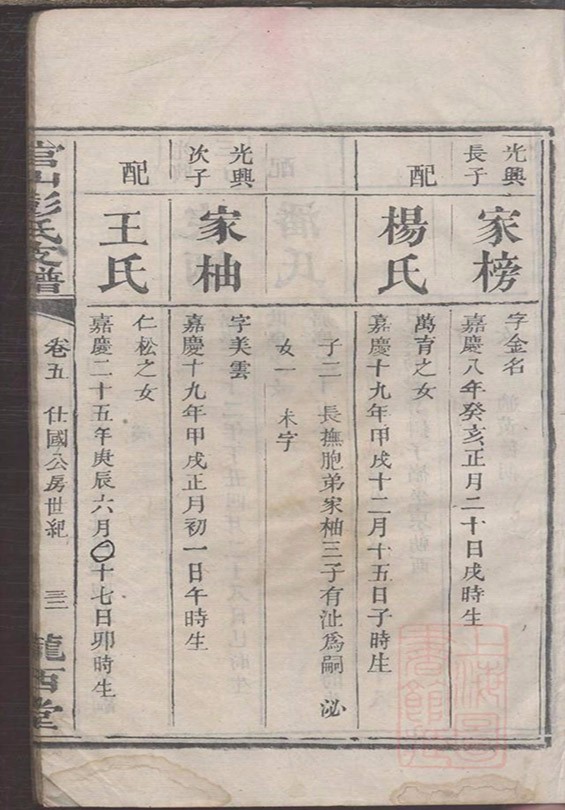 光興
長子
家榜
字金名
嘉慶八年癸亥正月二十日戌時生
配
楊氏
萬育之女
嘉慶十九年甲戌十二月十五日子時生
子二 長撫胞弟家柚三子有沚為嗣 泌
女一 未字
光興
次子
家柚
字美雲
嘉慶十九年甲戌正月初一日午時生
配
王氏
仁松之女
嘉慶二十五年庚辰六月〇十七日卯時生
官山彭氏支譜
卷五 仕國公房世紀 三二
隴西堂
上海圖書館藏